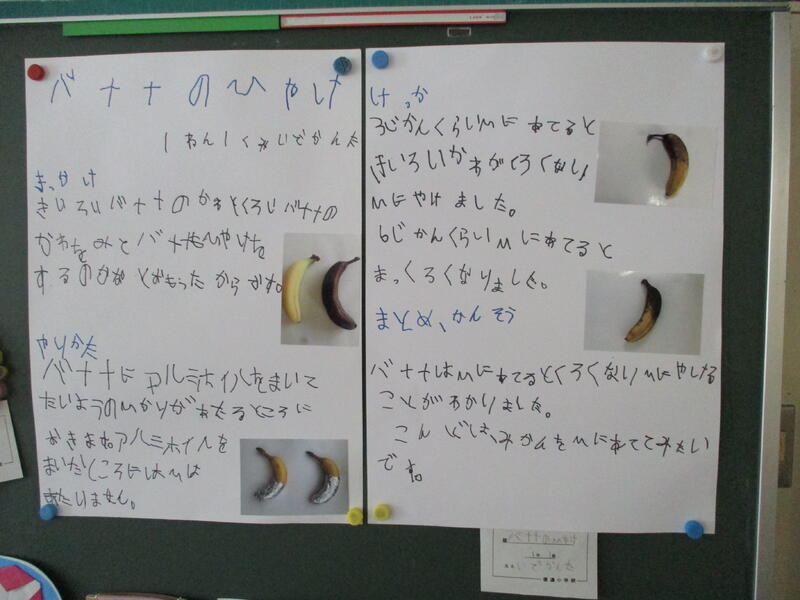 バナナのひやけ
1ねん1くみいでかんた
きっかけ
きいろいバナナのかわとくろいバナナの
かわをみてバナナもひやけを
するのかなとおもったからです。
やりかた
バナナにアルミホイルをまいて
たいようのひかりがあたるところに
おきますアルミホイルを
まいたところにはひは
あたりません。
けっか
3じかんくらいひにあてると
はいろいかわがくろくなり
ひにやけました。
6じかんくらいひにあてると
まっくろくなりました。
まとめ、かんそう
バナナはひにあてるとくろくなりひにやける
ことがわかりました。
こんどは、みかんをひにあててみたい
です。
バナナのひやけ
いでかんた